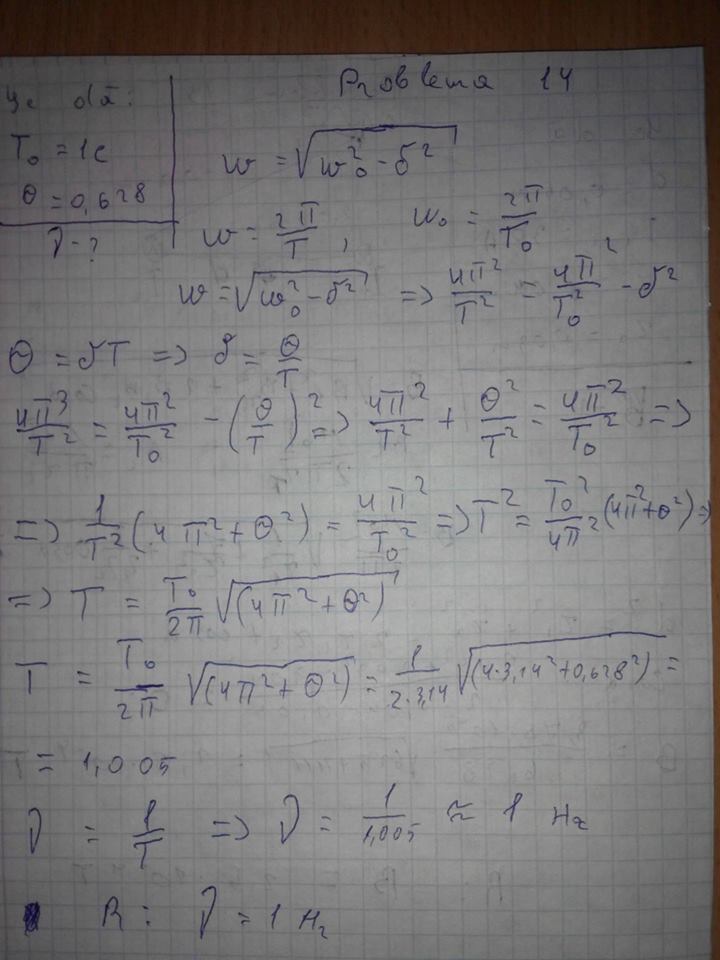 Problema 14
Se dă:
T₀ = 1c
θ = 0,628
ν - ?
w = √(w₀² - δ²)
w = 2π/T , w₀ = 2π/T₀
w = √(w₀² - δ²) => 4π²/T² = 4π²/T₀² - δ²
θ = δT => δ = θ/T
4π³/T² = 4π²/T₀² - (θ/T)² => 4π²/T² + θ²/T² = 4π²/T₀² =>
=> 1/T² (4π² + θ²) = 4π²/T₀² => T² = T₀²/4π² (4π² + θ²) =>
=> T = T₀/2π √(4π² + θ²)
T = T₀/2π √(4π² + θ²) = 1/2·3,14 √(4·3,14² + 0,628²) =
T = 1,005
ν = 1/T => ν = 1/1,005 ≈ 1 Hz
R: ν = 1 Hz